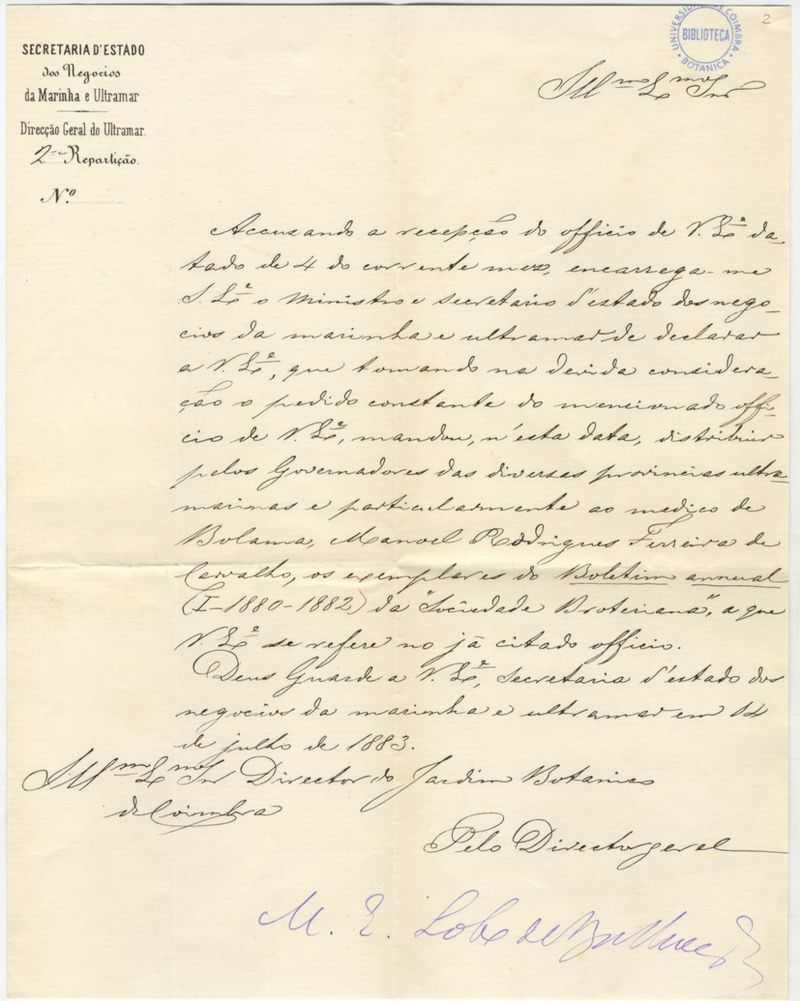 2
UNIVERSIDADE DE COIMBRA
BIBLIOTECA
BOTANICA
SECRETARIA D'ESTADO
dos Negocios
da Marinha e Ultramar
Direcção Geral do Ultramar.
2ª Repartição.
N.º
Ill.mo Ex.mo Snr
Accusando a recepção do officio de V. Ex.ª da-
tado de 4 do corrente mez, encarrega-me
S. Ex.ª o Ministro e secretario d'estado dos nego-
cios da marinha e ultramar de declarar
a V. Ex.ª, que tomando na devida considera-
ção o pedido constante do mencionado offi-
cio de V. Ex.ª, mandou, n'esta data, distribuir
pelos Governadores das diversas provincias ultra-
marinas e particularmente ao medico de
Bolama, Manoel Rodrigues Ferreira de
Carvalho, os exemplares do Boletim annual
(I-1880-1882) da "Sociedade Broteriana", a que
V. Ex.ª se refere no já citado officio.
Deus Guarde a V. Ex.ª, secretaria d'estado dos
negocios da marinha e ultramar em 14
de julho de 1883.
Ill.mo Ex.mo Snr Director do Jardim Botanico
de Coimbra
Pelo Director geral
M. E. Lobo de Bulhões